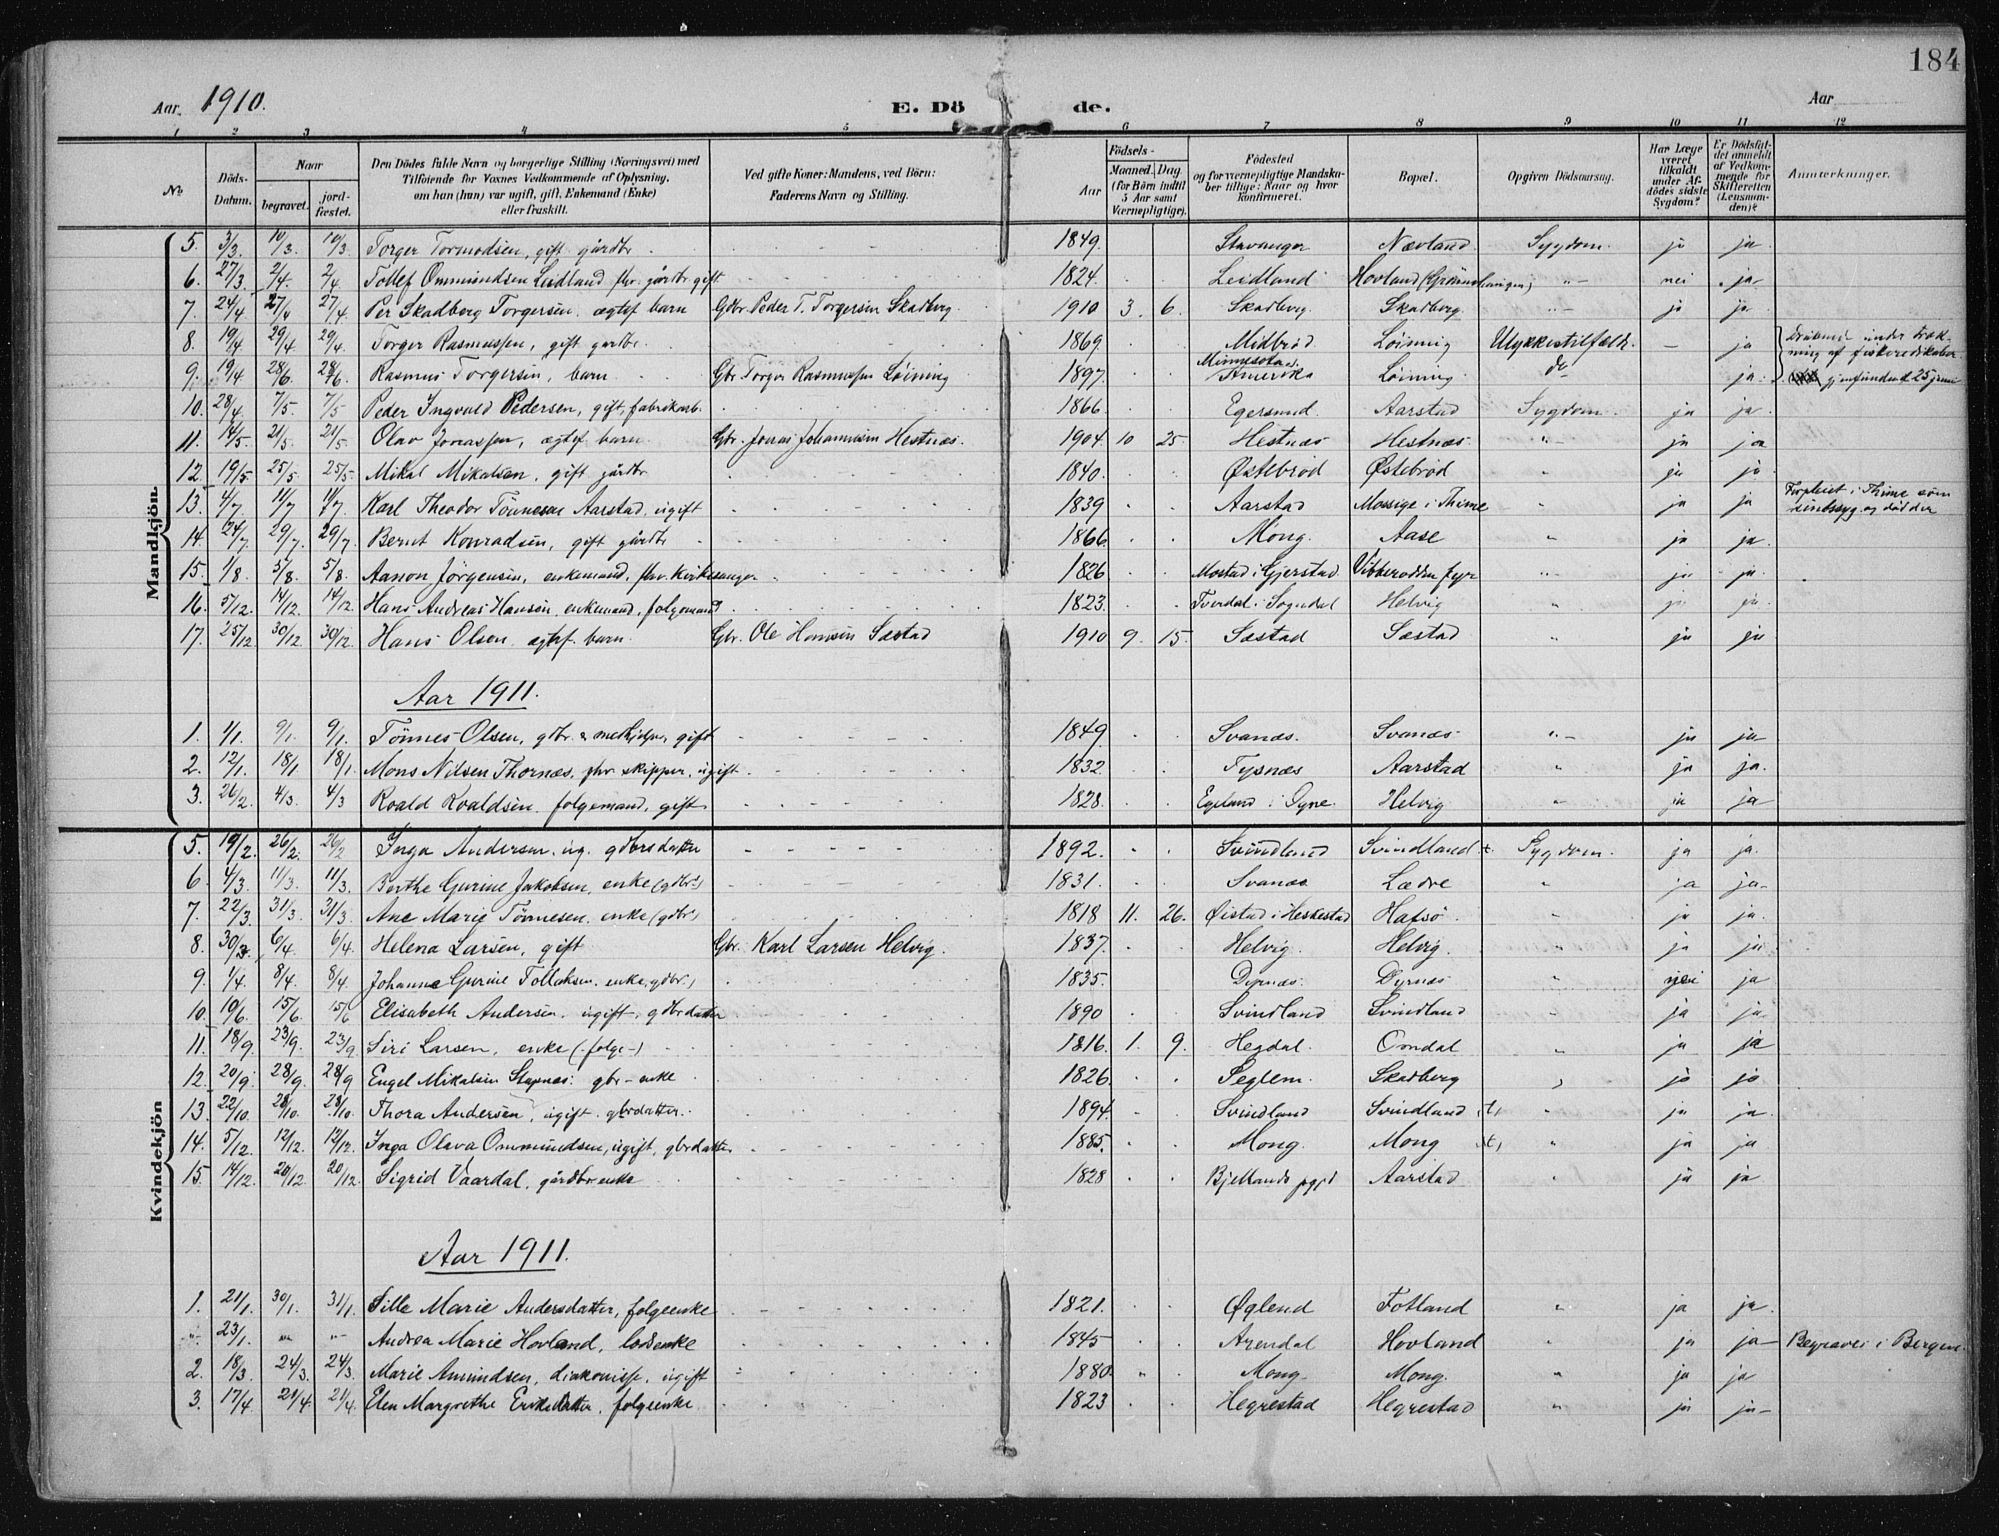 184
Aar 1910. E. Dö de. Aar
1 2 3 4 5 6 7 8 9 10 11 12
No. Döds-Datum. Naar begravet. jordfæstet. Den Dödes fulde Navn og borgerlige Stilling (Næringsvei) med Tilföiende for Voxnes Vedkommende af Oplysning, om han (hun) var ugift, gift, Enkemand (Enke) eller fraskilt. Ved gifte Koner: Mandens, ved Börn: Faderens Navn og Stilling. Födsels- Aar Maaned. Dag (for Börn indtil 5 Aar samt Værnepligtige). Födested og for værnepligtige Mandskaber tillige: Naar og hvor konfirmeret. Bopæl. Opgiven Dödsaarsag. Har Læge været tilkaldt under Afdödes sidste Sygdom? Er Dödsfaldet anmeldt af Vedkommende for Skifteretten (Lensmanden)? Anmærkninger.
Mandkjön.
5. 3/3 10/3 10/3 Torger Tormodsen, gift gårdbr. 1849. Stavanger Nævland Sygdom. ja ja
6. 27/3 2/4 2/4 Tollef Ommundsen Leidland fhv. gårdbr. gift 1824. Leidland Hovland nei ja
7. 24/4 27/4 27/4 Per Skadberg Torgersen. ægtef. barn Gdbr. Peder T. Torgersen Skadberg. 1910 3. 6. Skadberg. Skadberg. ja ja
8. 19/4 29/4 29/4 Torger Rasmussen, gift gårdbr. 1869. Midbrød Løining Ulykkestilfælde. - ja drukned under trækning af fiskeredskaber
9. 19/4 28/6 28/6 Rasmus Torgersen, barn. Gbr. Torger Rasmussen Løining 1897. Minnesota Amerika Løining. do ja. gjenfunden d 25 juni
10. 28/4 7/5 7/5 Peder Ingvald Pedersen, gift, fabrikarb. 1866. Egersund. Aarstad Sygdom. ja ja.
11. 14/5 21/5 21/5 Olav Jonassen, ægtef. barn Gbr. Jonas Johannesen Hestnæs. 1904. 10 25. Hestnæs Hestnæs ja ja
12. 19/5 25/5 25/5. Mikal Mikalsen, gift gårdbr 1840. Østebrød Østebrød ja ja
13. 4/7 11/7 11/7 Karl Theodor Tönnesen Aarstad, ugift 1839 Aarstad Mossige i Thime ja ja Forpleiet i Thime som sindssyg og død der
14. 24/7 29/7 29/7 Bernt Konradsen, gift gårdbr 1866. Mong. Aase ja ja
15. 1/8 5/8 5/8 Aanon Jörgensen, enkemand, fhv. kirkesanger 1826 Mostad i Gjerstad Vibberodden fyr ja ja
16. 5/12. 14/12. 14/12. Hans Andreas Hansen, enkemand, folgemand 1823. Tverdal i Sogndal Helvig ja ja
17. 25/12 30/12 30/12. Hans Olsen ægtef. barn. Gbr. Ole Hansen Sæstad 1910 9. 15. Sæstad Sæstad ja ja
Aar 1911.
1. 1/1. 9/1. 9/1. Tönnes Olsen, gbr. & medhjelper, gift 1849 Svanæs. Svanæs ja ja
2. 12/1. 18/1 18/1. Mons Nilsen Thornæs. fhv skipper, ugift 1832. Tysnæs Aarstad ja ja.
3. 26/2 4/3 4/3 Roald Roaldsen. folgemand, gift 1828. Egeland i Øyne Helvig ja ja
Kvindekjön
5. 19/2. 26/2. 26/2 Inga Andersen. ug. gdbrsdatter 1892. Svindland Svindland t. Sygdom. ja ja.
6. 4/3. 11/3. 11/3. Berthe Gurine Jakobsen, enke (gdbr) 1831. Svanæs Lædre ja ja
7. 22/3. 31/3. 31/3. Ane Marie Tönnesen. enke (gdbr) 1818 11. 26. Øistad i Heskestad Hafsö. ja ja.
8. 30/3. 6/4. 6/4. Helena Larsen, gift Gbr. Karl Larsen Helvig. 1837. Helvig. Helvig. ja ja
9. 1/4. 8/4. 8/4. Johanne Gurine Tollaksen. enke, gdbr.) 1835. Dyrnæs. Dyrnæs nei ja
10. 10/6. 15/6. 15/6 Elisabeth Andersen. ugift, gdbrdatter 1890 Svindland Svindland ja ja.
11. 18/9. 23/9. 23/9 Siri Larsen, enke (folge-) 1816. 1. 9. Hegdal. Omdal ja ja
12. 20/9. 28/9. 28/9 Engel Mikalsen Stapnæs. gbr-enke 1826. Seglem. Skadberg ja ja
13. 22/10. 28/10. 28/10. Thora Andersen, ugift. gbrdatter. 1894. Svindland Svindland t, ja ja.
14. 5/12. 12/12. 12/12. Inga Olava Ommundsen, ugift, gbrdatter 1885. Mong. Mong t, ja ja
15. 14/12. 20/12 20/12. Sigrid Vaardal, gårdbr. enke 1828 Bjellands pgjd Aarstad ja ja
Aar 1911.
1. 21/1. 30/1. 31/1. Sille Marie Andersdatter, folgeenke 1821. Øglend Fotland ja ja.
23/1. Andrea Marie Hovland, lodsenke 1845 Arendal Hovland ja ja Begravet i Bergen
2. 18/3. 24/3. 24/3. Marie Amundsen, diakonisse, ugift 1880. Mong. Mong. ja ja
3. 17/4 21/4. 21/4. Elen Margrethe Eriksdatter. folgeenke 1823 Hegrestad Hegrestad ja ja